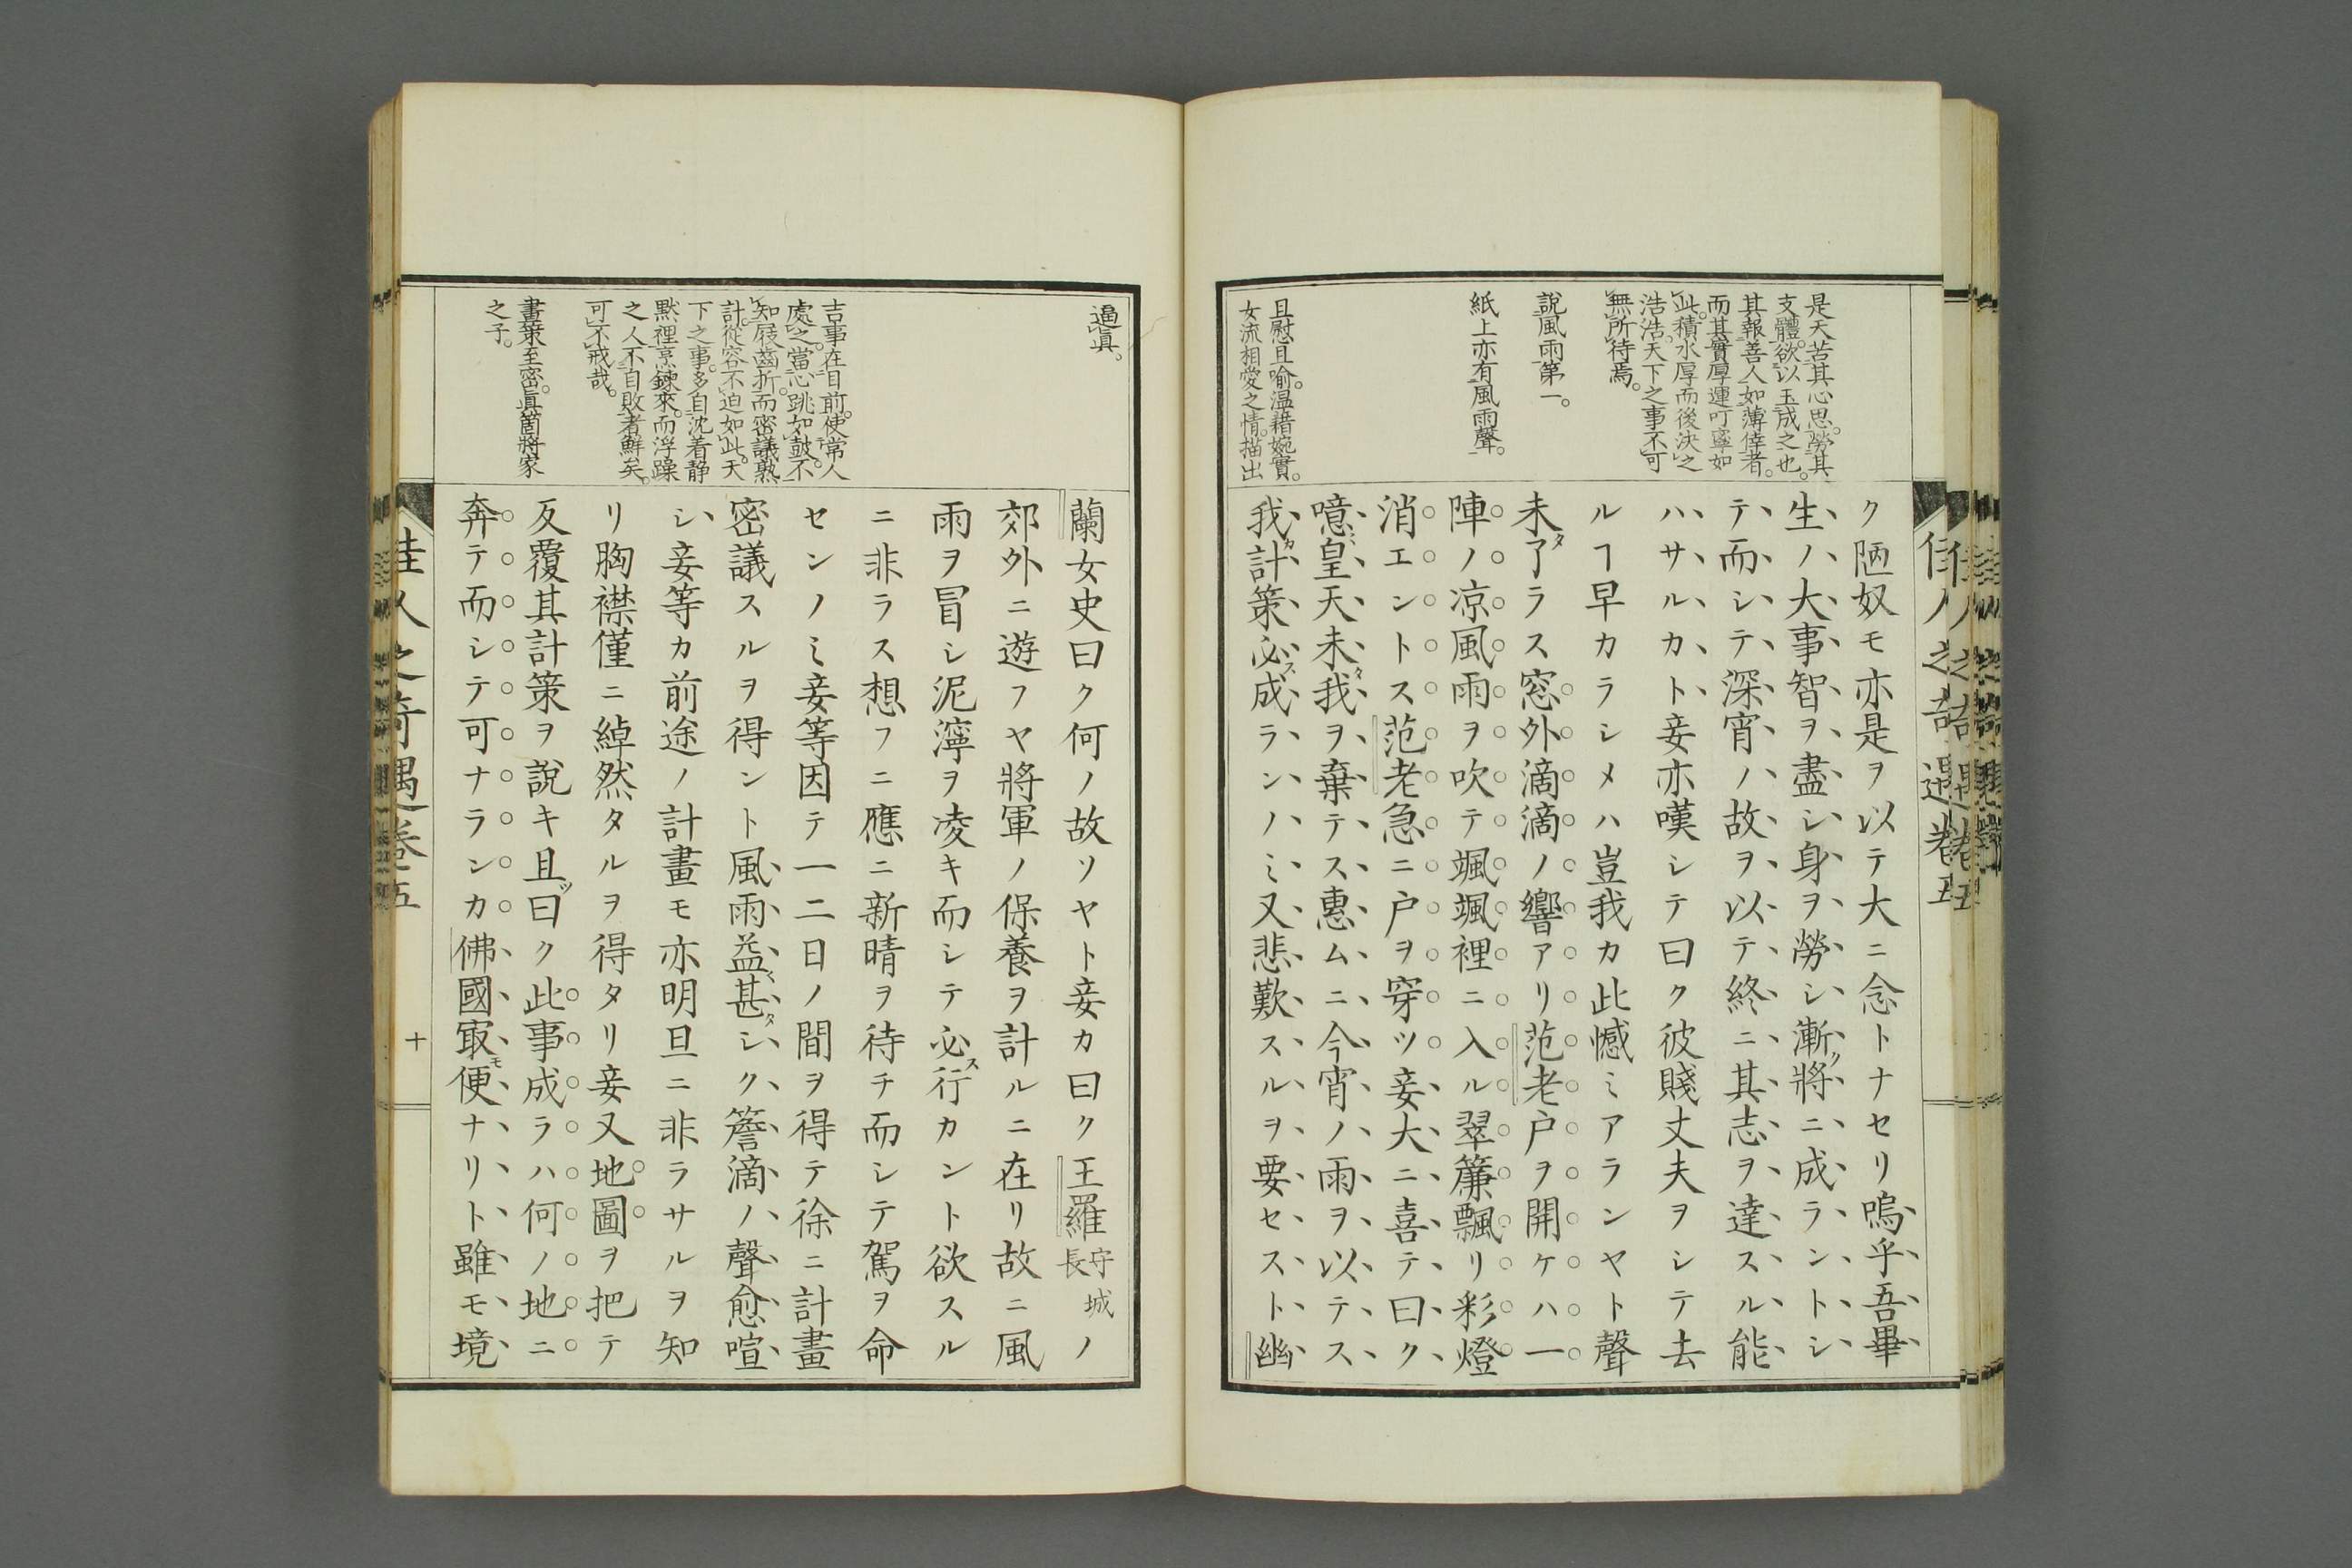 是天苦其心思。勞其
支體。欲以玉成之也。
其報善人如薄倖者。
而其實厚運叮寧如
此。積水厚而後決之
浩浩。天下之事不可
無所待焉。
説風雨第一。
紙上亦有風雨聲。
且慰且喻。温藉婉實。
女流相愛之情。描出
ク陋奴モ亦是ヲ以テ大ニ念トナセリ嗚乎吾畢
生ノ大事智ヲ盡シ身ヲ勞シ漸ク將ニ成ラントシ
テ而シテ深宵ノ故ヲ以テ終ニ其志ヲ達スル能
ハサルカト妾亦嘆シテ曰ク彼賤丈夫ヲシテ去
ルヿ早カラシメハ豈我カ此憾ミアランヤト聲
未タ了ラス窓外滴滴ノ響アリ范老戸ヲ開ケハ一
陣ノ凉風雨ヲ吹テ颯颯裡ニ入ル翠簾飄リ彩燈
消エントス范老急ニ戸ヲ穿ツ妾大ニ喜テ曰ク
噫皇天未タ我ヲ棄テス惠ムニ今宵ノ雨ヲ以テス
我カ計策必ス成ランノミ又悲歎スルヲ要セスト幽
逼眞。
吉事在目前。使常人
處之。當心跳如鼓。不
知屐齒折。而密議熟
計。從容不迫如此。天
下之事。多自沈着静
默裡烹鍊來。而浮躁
之人不自敗者鮮矣。
可不戒哉。
畫策至密。眞箇將家
之子。
蘭女史曰ク何ノ故ソヤト妾カ曰ク王羅守城長ノ
郊外ニ遊フヤ將軍ノ保養ヲ計ルニ在リ故ニ風
雨ヲ冒シ泥濘ヲ凌キ而シテ必ス行カント欲スル
ニ非ラス想フニ應ニ新晴ヲ待チ而シテ駕ヲ命
センノミ妾等因テ一二日ノ間ヲ得テ徐ニ計畫
密議スルヲ得ント風雨益甚タシク簷滴ノ聲愈喧
シ妾等カ前途ノ計畫モ亦明旦ニ非ラサルヲ知
リ胸襟僅ニ綽然タルヲ得タリ妾又地圖ヲ把テ
反覆其計策ヲ説キ且ツ曰ク此事成ラハ何ノ地ニ
奔テ而シテ可ナランカ佛國㝡モ便ナリト雖モ境
佳人之奇遇卷五
十